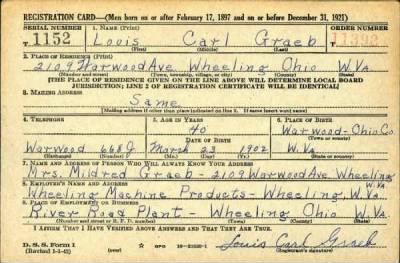 REGISTRATION CARD—(Men born on or after February 17, 1897 and on or before December 31, 1921)
SERIAL NUMBER 1. NAME (Print) ORDER NUMBER
T 1152 Louis Carl Graeb 11392
(First) (Middle) (Last)
2. PLACE OF RESIDENCE (Print)
2109 Warwood Ave Wheeling Ohio W.Va
(Number and street) (Town, township, village, or city) (County) (State)
[THE PLACE OF RESIDENCE GIVEN ON THE LINE ABOVE WILL DETERMINE LOCAL BOARD
JURISDICTION; LINE 2 OF REGISTRATION CERTIFICATE WILL BE IDENTICAL]
3. MAILING ADDRESS
Same
[Mailing address if other than place indicated on line 2. If same insert word same]
4. TELEPHONE 5. AGE IN YEARS 6. PLACE OF BIRTH
40 Warwood-Ohio Co.
DATE OF BIRTH (Town or county)
Warwood 668J March 23 1902 W.Va
(Exchange) (Number) (Mo.) (Day) (Yr.) (State or country)
7. NAME AND ADDRESS OF PERSON WHO WILL ALWAYS KNOW YOUR ADDRESS
Mrs. Mildred Graeb-2109 Warwood Ave. Wheeling
W.Va
8. EMPLOYER'S NAME AND ADDRESS
Wheeling Machine Products-Wheeling, W.Va
9. PLACE OF EMPLOYMENT OR BUSINESS
River Road Plant - Wheeling Ohio W.Va
(Number and street or R. F. D. number) (Town) (County) (State)
I AFFIRM THAT I HAVE VERIFIED ABOVE ANSWERS AND THAT THEY ARE TRUE.
D. S. S. Form 1 (over) GPO Louis Carl Graeb
(Revised 1-1-42) (Registrant's signature)